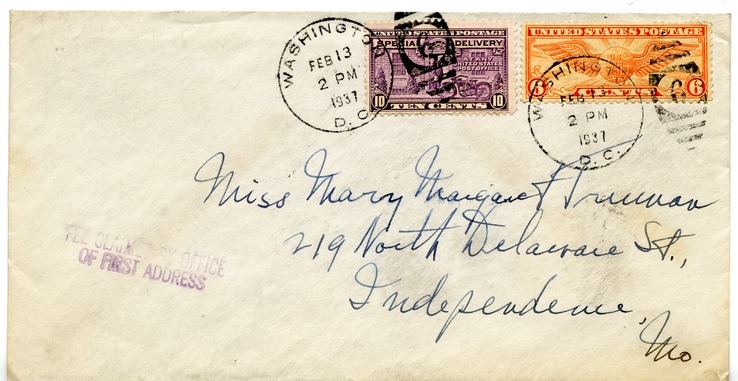 WASHINGTON
FEB 13
2 PM
1937
D. C.
UNITED STATES POSTAGE
SPECIAL DELIVERY
AT ANY
UNITED STATES
POST OFFICE
10 10
TEN CENTS
UNITED STATES POSTAGE
6 CENTS 6
WASHINGTON
FEB 13
2 PM
1937
D. C.
Miss Mary Margaret Truman
219 North Delaware St.,
Independence,
Mo.
FEE CLAIMED BY OFFICE
OF FIRST ADDRESS